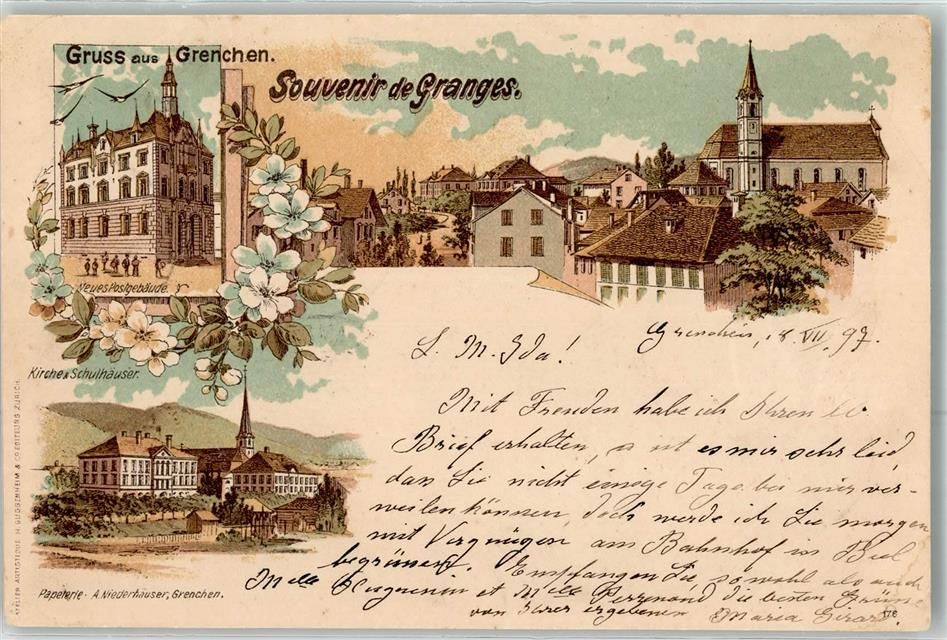 Gruss aus Grenchen.
Souvenir de Granges.
Neues Postgebäude.
Kirche & Schulhäuser.
ATELIER ARTISTIQUE H. GUGGENHEIM & CO EDITEURS ZURICH.
Papeterie A. Niederhäuser, Grenchen.
Grenchen, 18. VII. 97.
L. M. Ida!
Mit Freuden habe ich Ihren
Brief erhalten, es ist es mir sehr leid,
dass Sie nicht einige Tage bei mir ver-
weilen können, doch werde ich Sie morgen
mit Vergnügen am Bahnhof in Biel
begrüssen. Empfangen Sie, sowohl als auch
Mlle Huguenin et Mlle die besten Grüsse
von Ihrer ergebenen Maria Girard
176